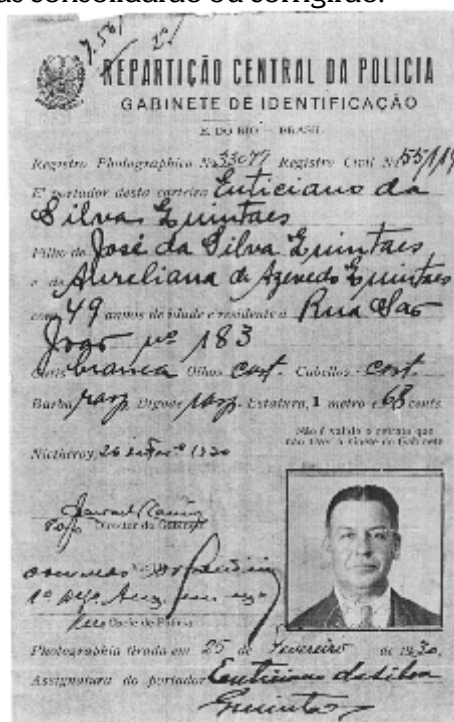 as consolidarão ou corrigirão.
REPARTIÇÃO CENTRAL DA POLICIA
GABINETE DE IDENTIFICAÇÃO
E. DO RIO — BRASIL
Registro Photographico Nº 33077 Registro Civil Nº
E' portador desta carteira Euticiano da
Silva Quintaes
Filho de José da Silva Quintaes
e de Aureliana de Azevedo Quintaes
com 49 annos de idade e residente á Rua São
João nº 183
Cutis branca Olhos cast. Cabellos cast.
Barba rasp. Bigode rasp. Estatura, 1 metro e 68 cents.
Não é valido o retrato que
não tiver o sinete do Gabinete
Nictheroy, 26 1930
Director do Gabinete
Chefe de Policia
Photographia tirada em 25 de Fevereiro de 1930.
Assignatura do portador Euticiano da Silva
Quintaes